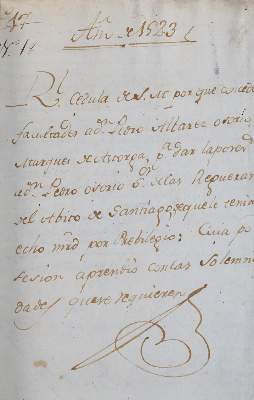 17
Año de 1523
Rl Cedula de S. M. por que concede
facultades a dn Pedro Albarez osorio
Marques de Astorga, pa dar la posesn
a dn Pedro osorio de las Regueras
del Abito de Santiago, de que le tenia
echo mrd por Prebilegio: Cuia po
sesion aprendio con las Solemni
dades que se requieren